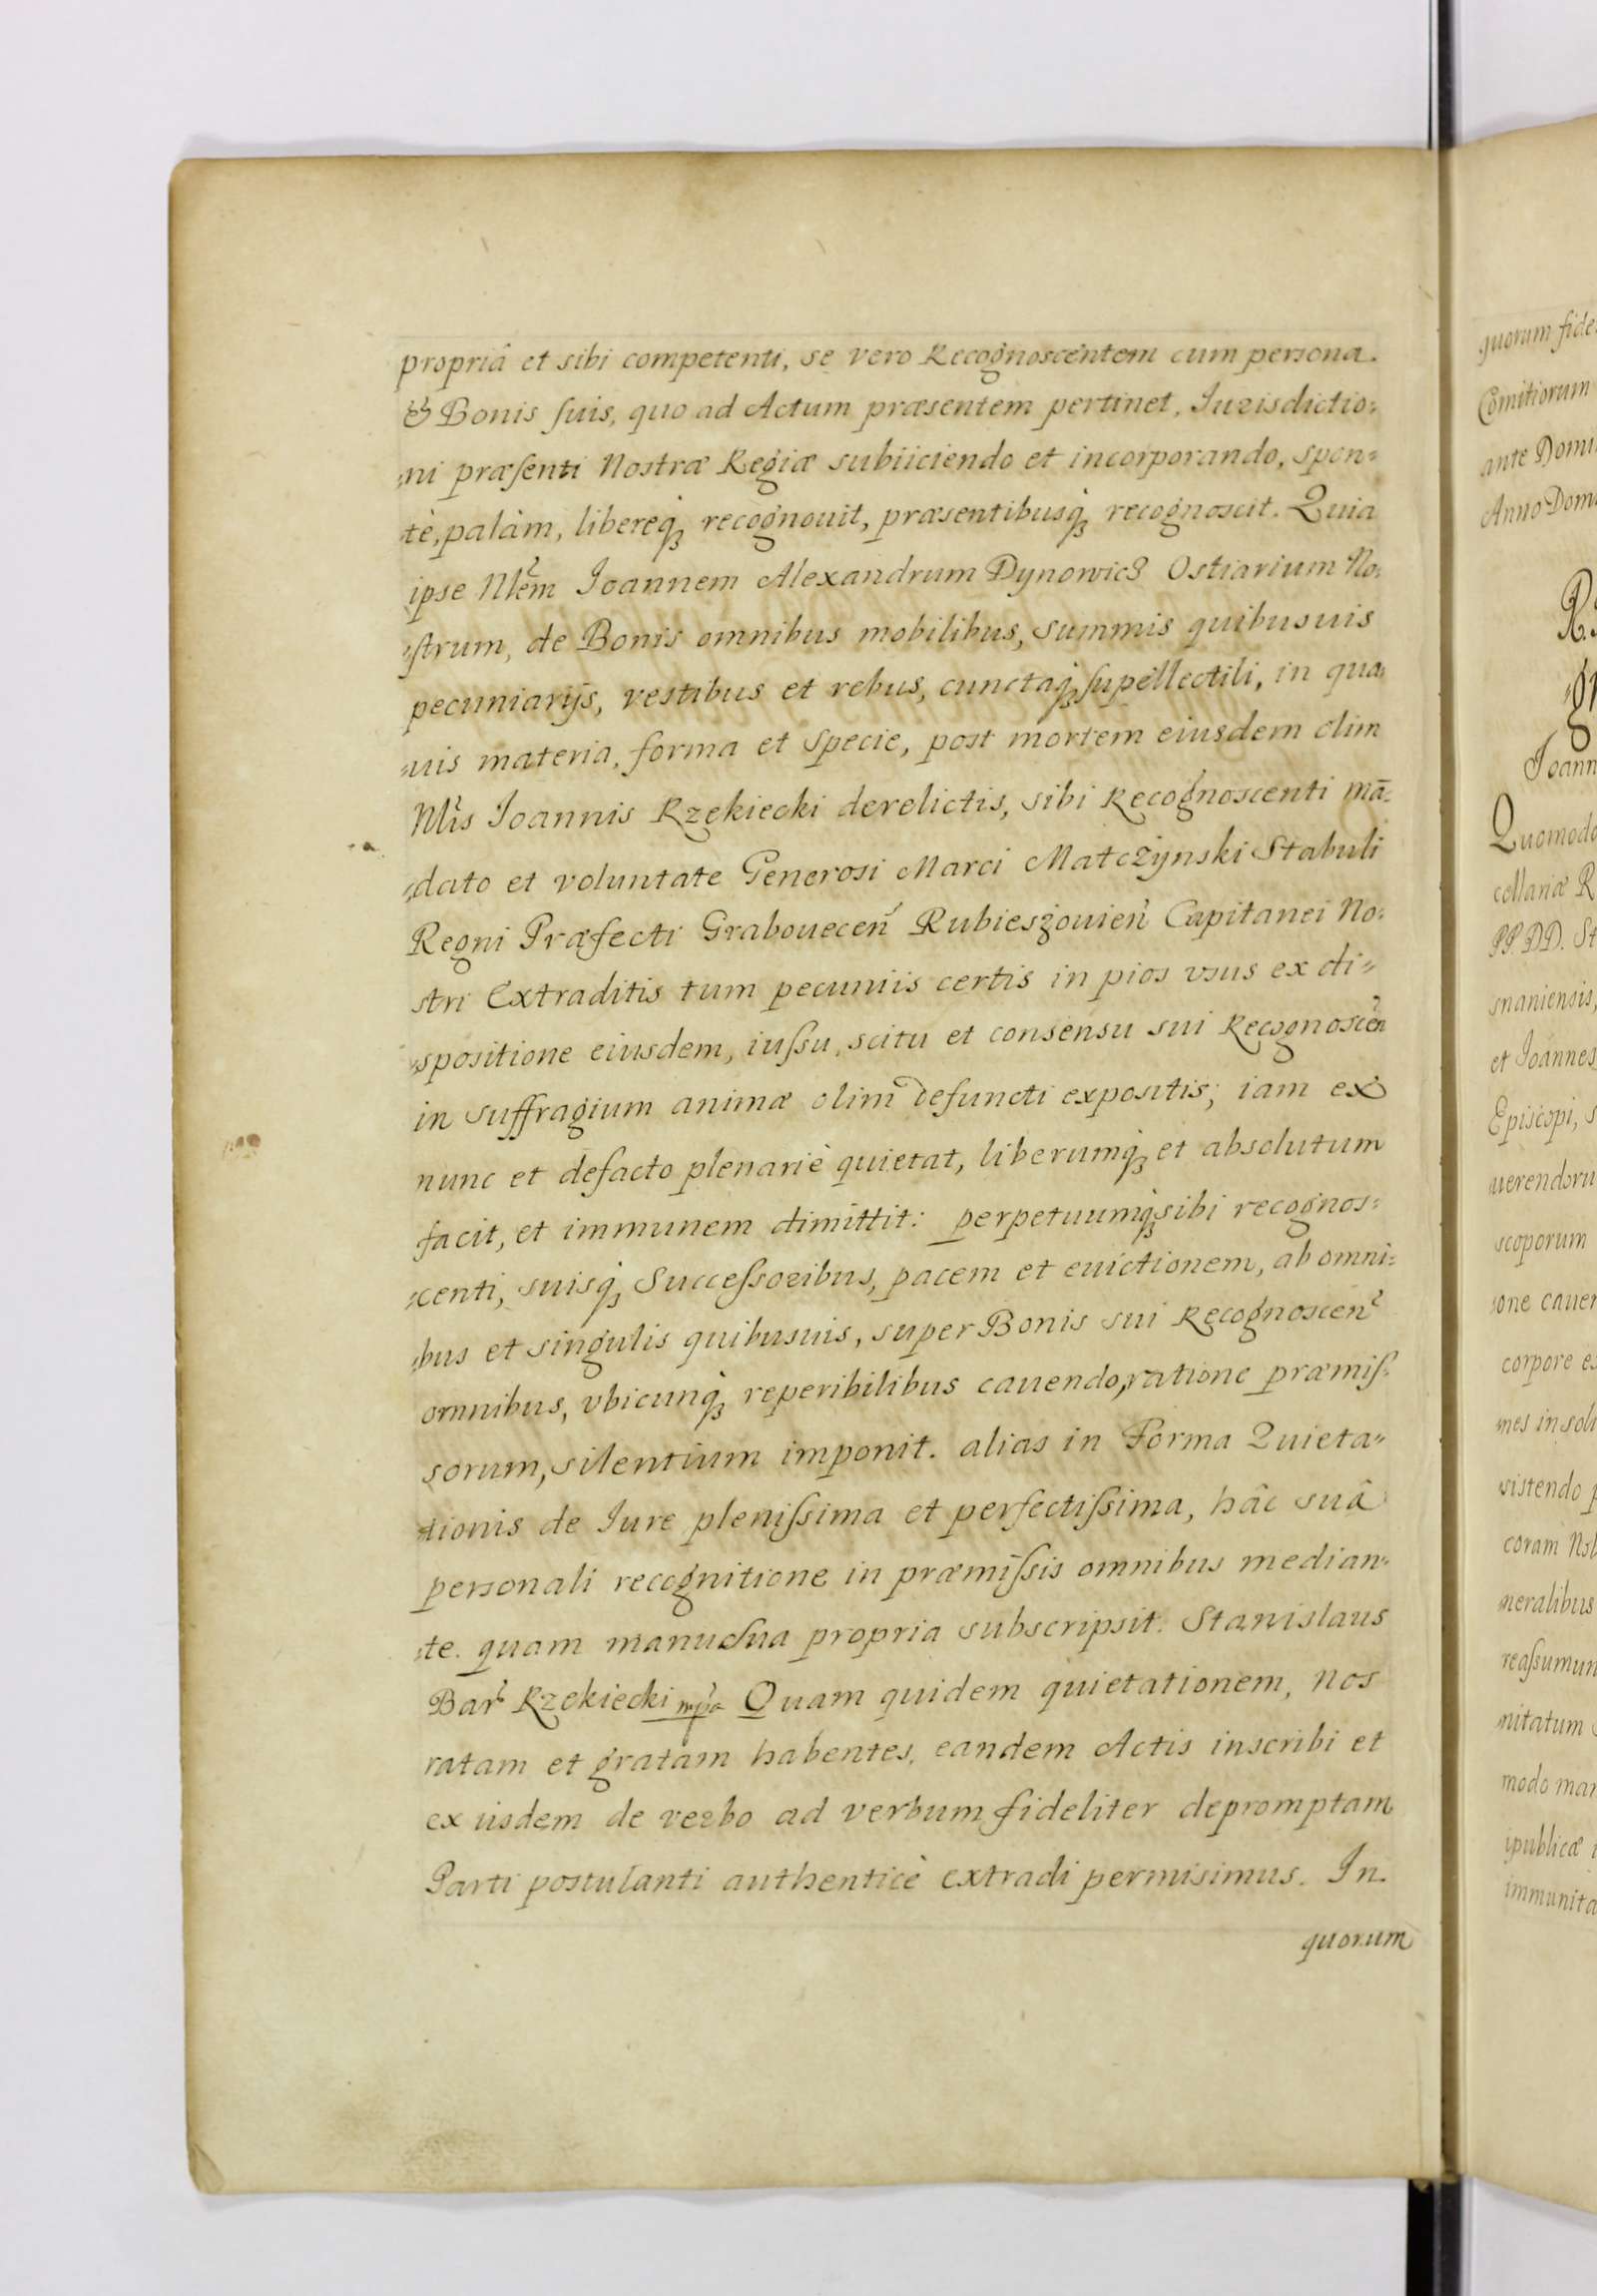 propriâ et sibi competenti, se vero Recognoscentem cum persona.
& Bonis suis, quo ad Actum præsentem pertinet, Iurisdictio=
=ni præsenti Nostræ Regiæ subiiciendo et incorporando, spon=
=tè, palàm, libereq́ recognouit, præsentibusq́ recognoscit. Quia
ipse Nlem̃ Ioannem Alexandrum Dynowicz Ostiarium No=
=strum, de Bonis omnibus mobilibus, summis quibusuis
pecuniarijs, vestibus et rebus, cunctaq́ supellectili, in qua=
=uis materia, forma et specie, post mortem eiusdem olim
Nlis̃ Ioannis Rzękiecki derelictis, sibi Recognoscenti mā=
=dato et voluntate Generosi Marci Matczÿnski Stabuli
Regni Præfecti Grabouecen̄ Rubieszouien̄ Capitanei No=
stri Extraditis tum pecuniis certis in pios vsus ex di=
=spositione eiusdem, iussu, scitu et consensu sui Recognoscen̄
in suffragium animæ olim defuncti expositis; iam ex
nunc et defacto plenariè quietat, liberumq́ et absolutum
facit, et immunem dimittit: perpetuumq́ sibi recognos=
=centi, suisq́ Successoribus, pacem et euictionem, ab omni=
=bus et singulis quibusuis, super Bonis sui Recognoscen̄
omnibus, vbicunq́ reperibilibus cauendo, ratione præmis=
sorum, silentium imponit. alias in Forma Quieta=
=tionis de Iure plenissima et perfectissima, hâc suâ
personali recognitione in præmissis omnibus median=
=te. quam manu sua propria subscripsit. Stanislaus
Bar̃ Rzekiecki mpa Quam quidem quietationem, nos
ratam et gratam habentes, eandem Actis inscribi et
ex iisdem de verbo ad verbum fideliter depromptam
Parti postulanti authenticè extradi permisimus. In
quorum
quorum fide
Comitiorum
ante Domi
Anno Dom
Joann
Quomodo
cellariæ R
PP. DD. St
snaniensis,
et Ioannes
Episcopi, s
uerendoru
scoporum
sone cauer
corpore e
mes in soli
sistendo p
coram Nob
neralibus
reassumun
nitatum
modo man
ipublicæ
immunita